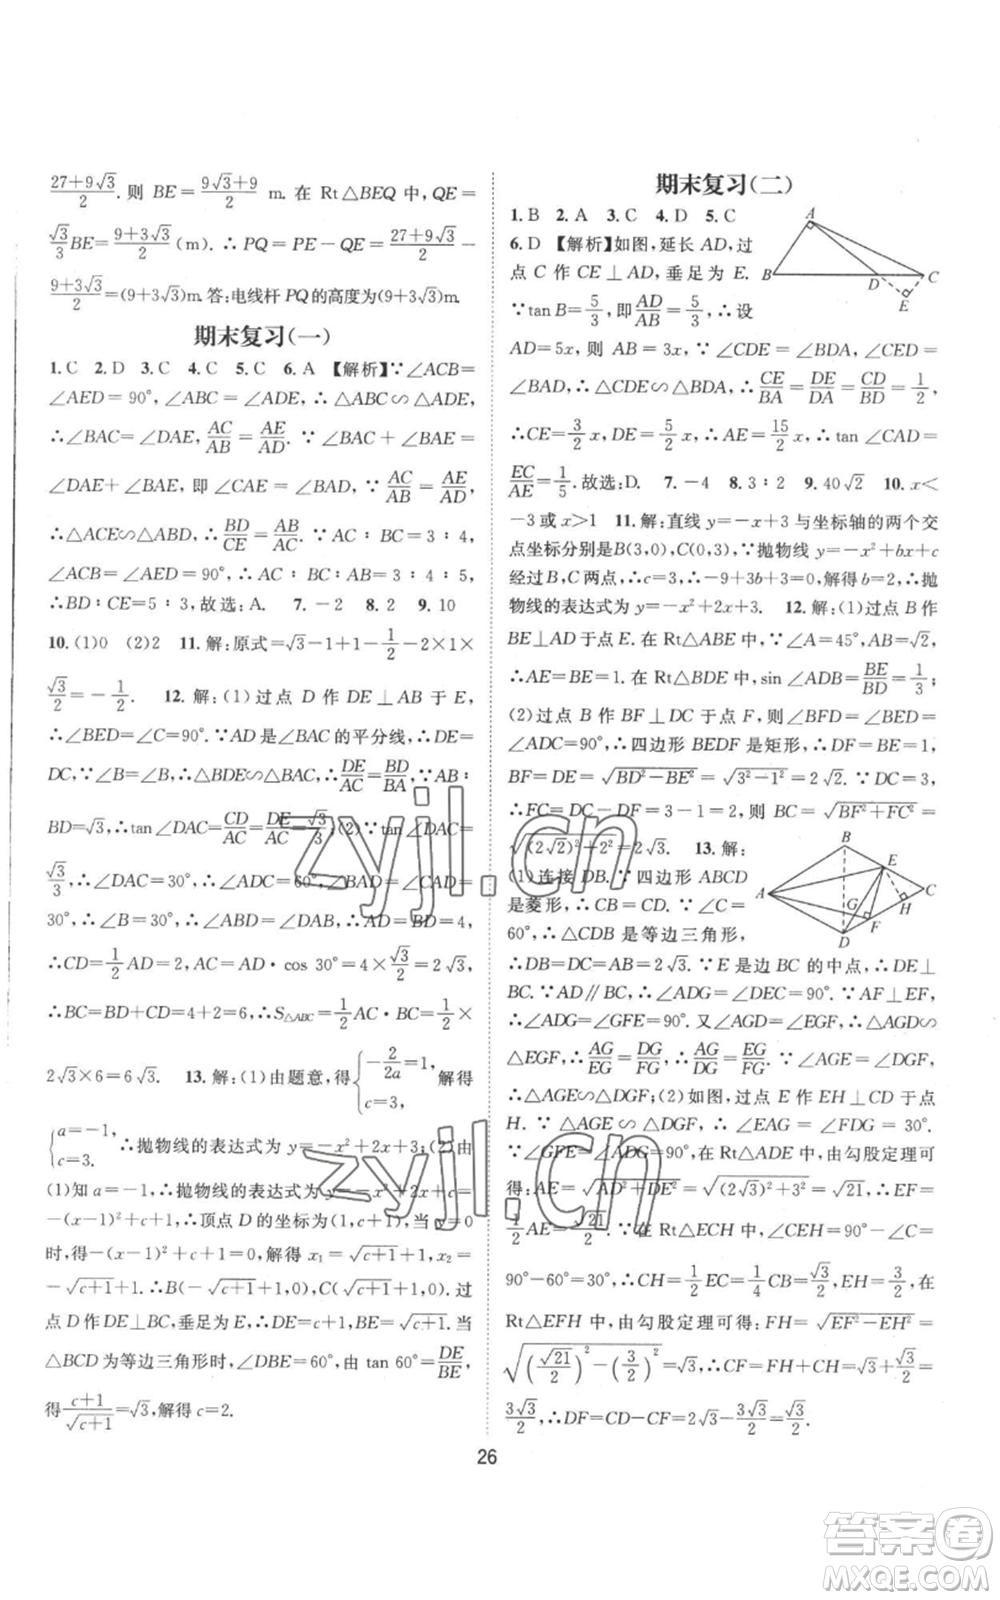 27+9√3/2.则 BE=9√3+9/2 m. 在 Rt△BEQ 中,QE=
√3/3BE=9+3√3/2(m).∴PQ=PE-QE=27+9√3/2-
9+3√3/2=(9+3√3)m.答:电线杆PQ的高度为(9+3√3)m.
期末复习(一)
1.C 2.D 3.C 4.C 5.C 6.A 【解析】∵∠ACB=
∠AED=90°,∠ABC=∠ADE,∴△ABC∽△ADE,
∴∠BAC=∠DAE,AC/AB=AE/AD. ∵∠BAC=
∠DAE+∠BAE,即∠CAE=∠BAD,∵AC/AB=AE/AD,
∴△ACE∽△ABD,∴BD/CE=AB/AC. ∵AC∶BC=3∶4,
∠ACB=∠AED=90°,∴AC∶BC∶AB=3∶4∶5,
∴BD∶CE=5∶3,故选:A. 7.-2 8.2 9.10
10.(1)0 (2)2 11.解:原式=√3-1+1-1/2-2×1×
√3/2=-1/2. 12.解:(1)过点D作DE⊥AB于E,
∴∠BED=∠C=90°.∵AD是∠BAC的平分线,∴DE=
DC,∵∠B=∠B,∴△BDE∽△BAC,∴DE/AC=BD/BA,∵AB=
BD=√3,∴tan∠DAC=CD/AC=DE/AC=√3/3;(2)∵tan∠DAC=
√3/3,∴∠DAC=30°,∴∠ADC=60°,∠BAD=∠CAD=
30°,∴∠B=30°,∴∠ABD=∠DAB,∴AD=BD=4,
∴CD=1/2AD=2,AC=AD·cos 30°=4×√3/2=2√3,
∴BC=BD+CD=4+2=6,∴S△ABC=1/2AC·BC=1/2×
2√3×6=6√3. 13.解:(1)由题意,得{-2/2a=1, c=3, 解得
{a=-1, c=3. ∴抛物线的表达式为y=-x²+2x+3;(2)由
(1)知a=-1,∴抛物线的表达式为y=-x²+2x+c=
-(x-1)²+c+1,∴顶点D的坐标为(1,c+1),当y=0
时,得-(x-1)²+c+1=0,解得x₁=√c+1+1,x₂=
-√c+1+1.∴B(-√c+1+1,0),C(√c+1+1,0).过
点D作DE⊥BC,垂足为E.∴DE=c+1,BE=√c+1,当
△BCD为等边三角形时,∠DBE=60°,由tan 60°=DE/BE
得c+1/√c+1=√3,解得c=2.
期末复习(二)
1.B 2.A 3.C 4.D 5.C
6.D 【解析】如图,延长AD,过
点C作CE⊥AD,垂足为E.
∵tan B=5/3,即AD/AB=5/3,∴设
AD=5x,则AB=3x,∵∠CDE=∠BDA,∠CED=
∠BAD,∴△CDE∽△BDA,∴CE/BA=DE/DA=CD/BD=1/2,
∴CE=3/2x,DE=5/2x,∴AE=15/2x,∴tan∠CAD=
EC/AE=1/5.故选:D. 7.-4 8.3∶2 9.40√2 10.x<
-3或x>1 11.解:直线y=-x+3与坐标轴的两个交
点坐标分别是B(3,0),C(0,3),∵抛物线y=-x²+bx+c
经过B,C两点,∴c=3,-9+3b+3=0,解得b=2,∴抛
物线的表达式为y=-x²+2x+3. 12.解:(1)过点B作
BE⊥AD于点E.在Rt△ABE中,∵∠A=45°,AB=√2,
∴AE=BE=1.在Rt△EBD中,sin∠ADB=BE/BD=1/3;
(2)过点B作BF⊥DC于点F,则∠BFD=∠BED=
∠ADC=90°,∴四边形BEDF是矩形,∴DF=BE=1,
BF=DE=√BD²-BE²=√3²-1²=2√2.∵CD=3,
∴FC=DC-DF=3-1=2,则BC=√BF²+FC²=
√(2√2)²+2²=2√3. 13.解:
(1)连接DB.∵四边形ABCD
是菱形,∴CB=CD.∵∠C=
60°,∴△CDB是等边三角形,
∴DB=DC=BC.∵E是边BC的中点,∴DE⊥
BC.∵AD∥BC,∴∠ADG=∠DEC=90°.∵AF⊥EF,
∴∠ADG=∠GFE=90°.又∠AGD=∠EGF,∴△AGD∽
△EGF,∴AG/EG=DG/FG,∴AG/DG=EG/FG.∵∠AGE=∠DGF,
∴△AGE∽△DGF;(2)如图,过点E作EH⊥CD于点
H. ∵△AGE∽△DGF,∴∠EAG=∠GDF=30°.
∵∠GFE=∠ADG=90°,在Rt△ADE中,由勾股定理可
得:AE=√AD²+DE²=√(2√3)²+3²=√21,∴EF=
1/2AE=√21/2.在Rt△ECH中,∠CEH=90°-∠C=
90°-60°=30°,∴CH=1/2EC=1/4CB=√3/2,EH=3/2,在
Rt△EFH中,由勾股定理可得:FH=√EF²-EH²=
√(√21/2)²-(3/2)²=√3.∴CF=FH+CH=√3+√3/2=
3√3/2,∴DF=CD-CF=2√3-3√3/2=√3/2.
A
B
D
C
E
B
E
A
C
G
H
F
D
26
zyjl.cn
zyjl.cn
答案圈
MXQE.COM